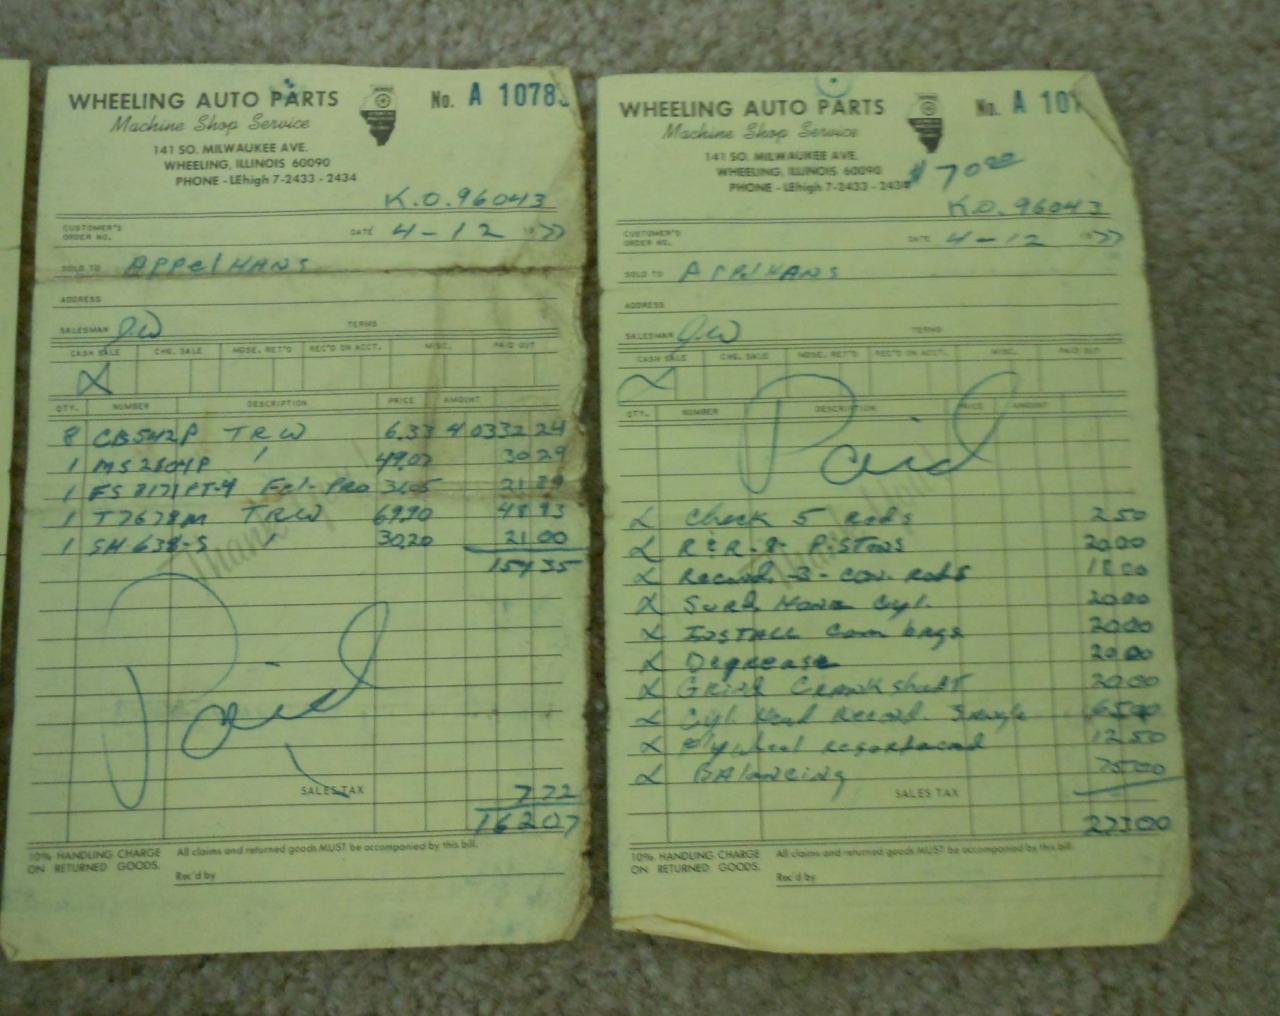 WHEELING AUTO PARTS
No. A 1078
Machine Shop Service
141 SO. MILWAUKEE AVE.
WHEELING, ILLINOIS 60090
PHONE - LEhigh 7-2433 - 2434
K.O. 96043
CUSTOMER'S ORDER NO.
DATE 4-12 1977
SOLD TO APPelHANS
ADDRESS
SALESMAN JW TERMS
CASH SALE CHG. SALE MDSE. RET'D REC'D ON ACCT. MISC. PAID OUT
X
QTY. NUMBER DESCRIPTION PRICE AMOUNT
8 CB542P TRW 6.33 4.03 32 24
1 MS2604P " 49.07 30 29
1 FS 8171PT-4 Fel-Pro 31.05 21 89
1 T7678M TRW 69.90 48 93
1 SH 638-S " 30.20 21 00
154 35
Thank You
Paid
SALES TAX 7 72
162 07
10% HANDLING CHARGE ON RETURNED GOODS.
All claims and returned goods MUST be accompanied by this bill.
Rec'd by
WHEELING AUTO PARTS
No. A 107
Machine Shop Service
141 SO. MILWAUKEE AVE.
WHEELING, ILLINOIS 60090
PHONE - LEhigh 7-2433 - 2434
$ 70 00
K.O. 96043
CUSTOMER'S ORDER NO.
DATE 4-12 1977
SOLD TO APPelHANS
ADDRESS
SALESMAN JW TERMS
CASH SALE CHG. SALE MDSE. RET'D REC'D ON ACCT. MISC. PAID OUT
X
QTY. NUMBER DESCRIPTION PRICE AMOUNT
Paid
Thank You
X Check 5 Rods 2 50
X R & R - 8 - PISTONS 20 00
X Recond. 3 - con. rods 18 00
X Surf. Hone Cyl. 20 00
X INSTALL Cam brgs 20 00
X Degrease 20 00
X Grind Crankshaft 30 00
X Cyl. Head Recond Single 65 00
X Flywheel resurfaced 12 50
X BAlancing 75 00
SALES TAX
273 00
10% HANDLING CHARGE ON RETURNED GOODS.
All claims and returned goods MUST be accompanied by this bill.
Rec'd by